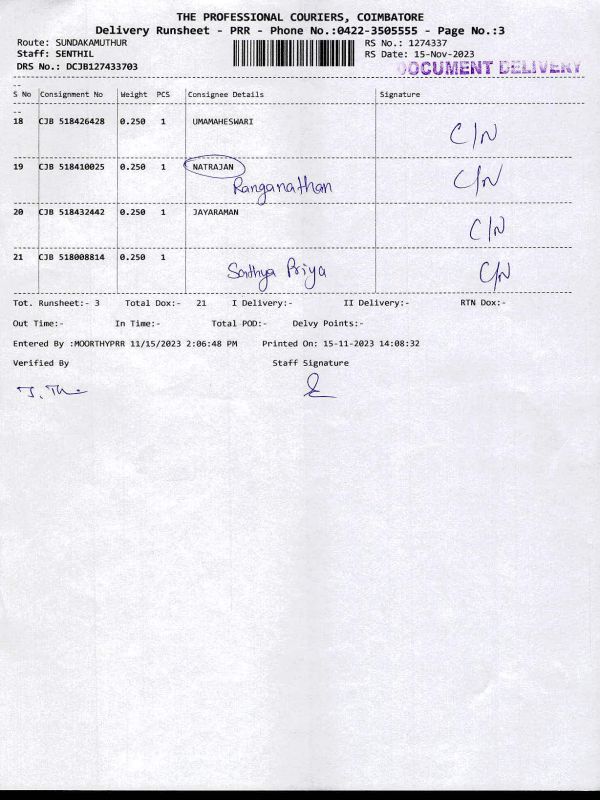 THE PROFESSIONAL COURIERS, COIMBATORE
Delivery Runsheet - PRR - Phone No.:0422-3505555 - Page No.:3
Route: SUNDAKAMUTHUR RS No.: 1274337
Staff: SENTHIL RS Date: 15-Nov-2023
DRS No.: DCJB127433703 DOCUMENT DELIVERY
S No Consignment No Weight PCS Consignee Details Signature
18 CJB 518426428 0.250 1 UMAMAHESWARI C/N
19 CJB 518410025 0.250 1 NATRAJAN C/N
Ranganathan
20 CJB 518432442 0.250 1 JAYARAMAN C/N
21 CJB 518008814 0.250 1 Sandhya Priya C/N
Tot. Runsheet:- 3 Total Dox:- 21 I Delivery:- II Delivery:- RTN Dox:-
Out Time:- In Time:- Total POD:- Delvy Points:-
Entered By :MOORTHYPRR 11/15/2023 2:06:48 PM Printed On: 15-11-2023 14:08:32
Verified By Staff Signature